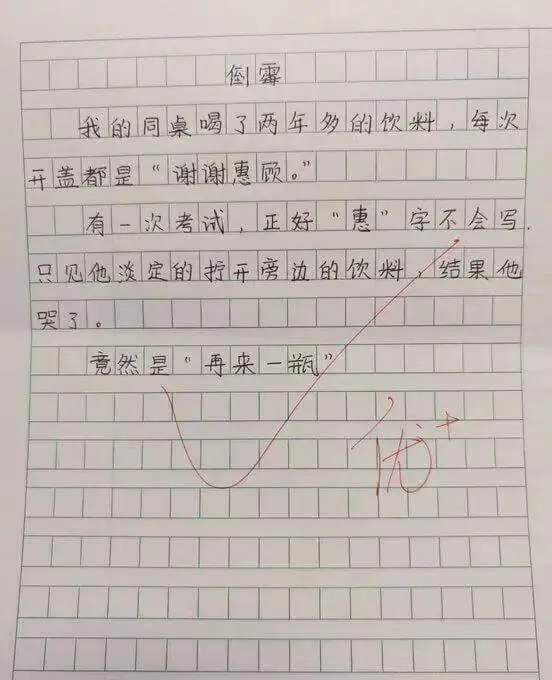 倒霉
我的同桌喝了两年多的饮料，每次
开盖都是“谢谢惠顾。”
有一次考试，正好“惠”字不会写，
只见他淡定的拧开旁边的饮料，结果他
哭了。
竟然是“再来一瓶”
优+